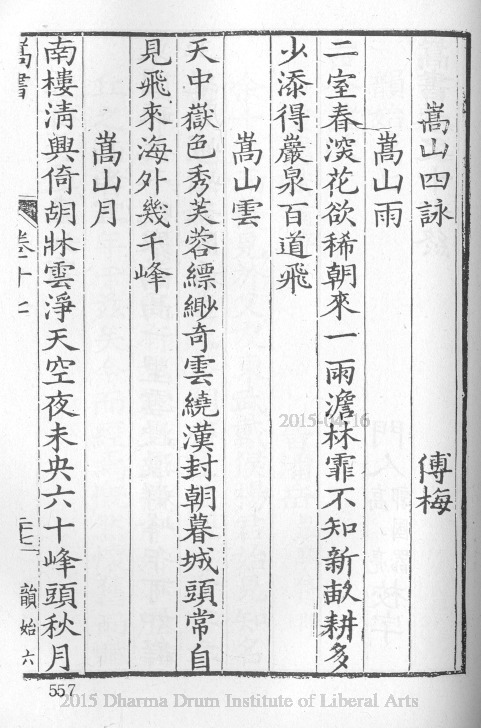 嵩山四詠　傅梅
嵩山雨
二室春深花欲稀朝來一雨澹林霏不知新畝耕多
少添得巖泉百道飛
嵩山雲
天中嶽色秀芙蓉縹緲奇雲繞漢封朝暮城頭常自
見飛來海外幾千峰
嵩山月
南樓清興倚胡牀雲淨天空夜未央六十峰頭秋月
嵩書
卷十七
韻始六
557
2015-04-16
2015 Dharma Drum Institute of Liberal Arts